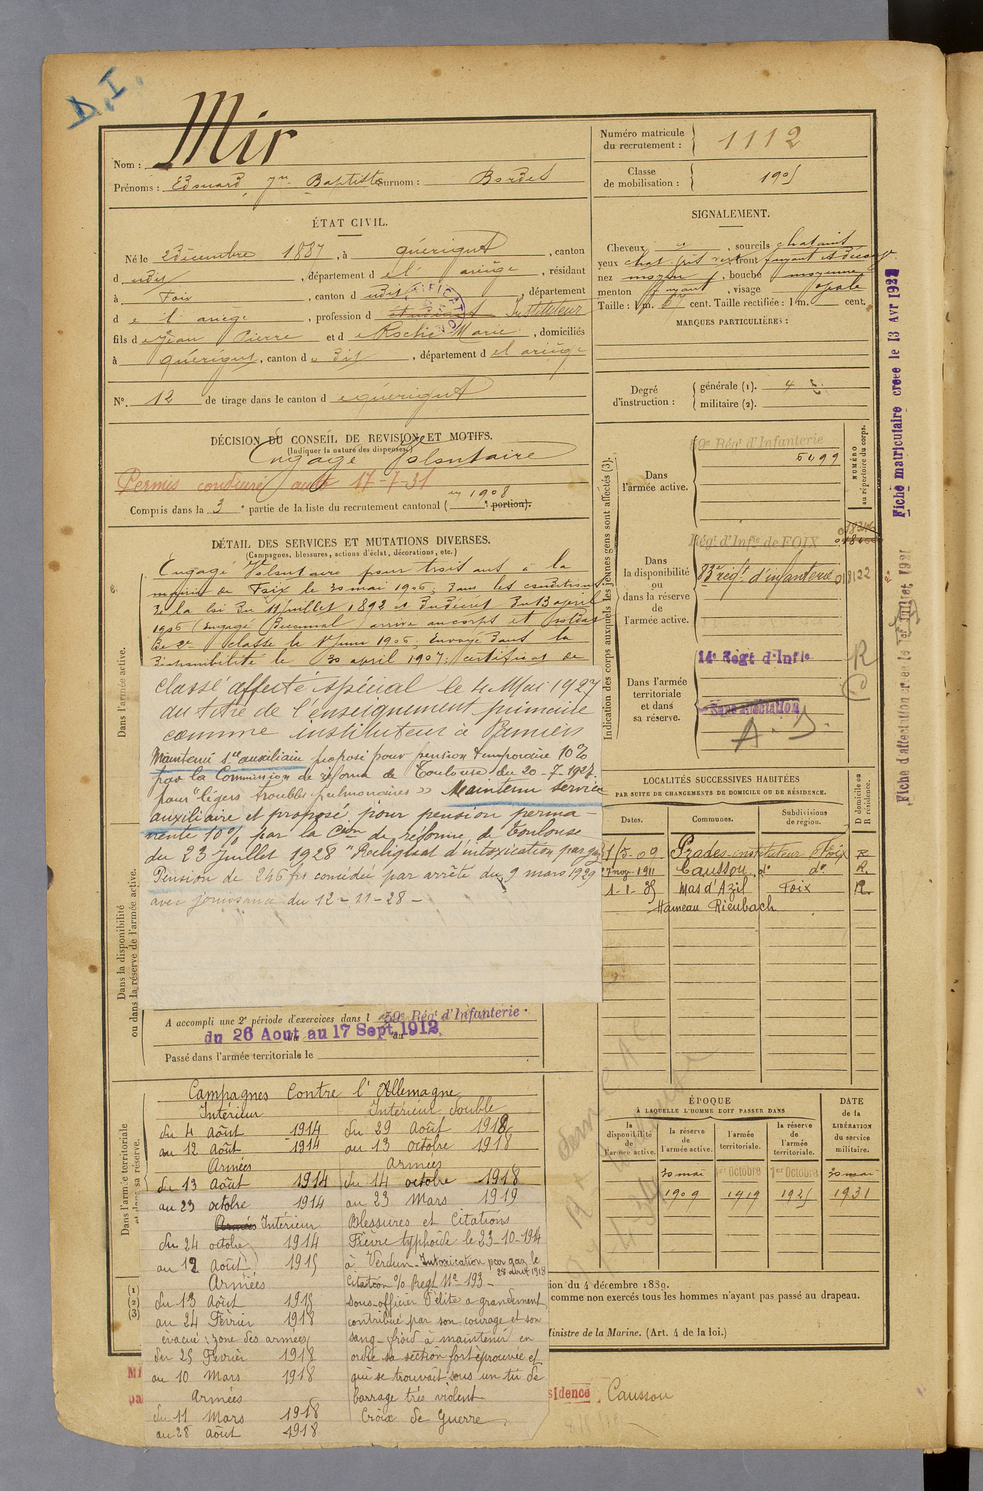 D.I.
Nom : Mir
Prénoms : Edouard, Jn Baptiste Surnom : Bordes
Numéro matricule du recrutement : 1112
Classe de mobilisation : 1905
ÉTAT CIVIL.
Né le 2 Décembre 1887, à Quérigut, canton
dudit, département de l'Ariège, résidant
à Foix, canton dudit, département
de l'Ariège, profession d'étudiant Instituteur
fils de Jean Pierre et de Rochè Marie, domiciliés
à Quérigut, canton dudit, département de l'Ariège
N° 12 de tirage dans le canton de Quérigut
SIGNALEMENT.
Cheveux, sourcils châtains
yeux front fuyant
nez moyen, bouche moyenne
menton fuyant, visage ovale
Taille : 1 m. cent. Taille rectifiée : 1 m. cent.
MARQUES PARTICULIÈRES :
Degré d'instruction : générale (1). 4
militaire (2).
DÉCISION DU CONSEIL DE REVISION ET MOTIFS.
(Indiquer la nature des dispenses)
Engagé Volontaire
Permis conduire auto 17-7-31
Compris dans la 3e partie de la liste du recrutement cantonal (en 1908 portion).
DÉTAIL DES SERVICES ET MUTATIONS DIVERSES.
(Campagnes, blessures, actions d'éclat, décorations, etc.)
Engagé Volontaire pour trois ans à la
mairie de Foix le 30 mai 1906, dans les conditions
de la loi du 11 juillet 1892 et du décret du 13 avril
1906 (Engagé Décennal) arrivé au corps et soldat
de 2e classe le 1er juin 1906; envoyé dans la
disponibilité le 30 avril 1907; certificat de
Classé affecté spécial le 4 Mai 1927
au titre de l'enseignement primaire
comme instituteur à Pamiers
Maintenu sce auxiliaire proposé pour pension temporaire 10%
par la Commission de réforme de Toulouse du 20-7-1927
pour "légers troubles pulmonaires" Maintenu service
auxiliaire et proposé pour pension perma-
nente 10% par la Con de réforme de Toulouse
du 23 Juillet 1928 "Reliquat d'intoxication par gaz
Pension de 246 frs concédée par arrêté du 9 mars 1929
avec jouissance du 12-11-28 -
A accompli une 2e période d'exercices dans l 59e Régt d'Infanterie
du 26 Aout au 17 Sept. 1912
Passé dans l'armée territoriale le
Dans l'armée active.
Dans la disponibilité ou dans la réserve de l'armée active.
Dans l'armée territoriale et dans sa réserve.
Campagnes Contre l'Allemagne
Intérieur
du 4 Août 1914
au 12 Août 1914
Armées
du 13 Août 1914
au 23 octobre 1914
Armées Intérieur
du 24 octobre 1914
au 12 août 1915
Armées
du 13 Août 1915
au 24 Février 1918
évacué zone des armées
du 25 Février 1918
au 10 Mars 1918
Armées
du 11 Mars 1918
au 28 août 1918
Intérieur double
du 29 Août 1918
au 13 octobre 1918
Armées
du 14 octobre 1918
au 23 Mars 1919
Blessures et Citations
Fièvre typhoïde le 23-10-1914
à Verdun. Intoxication par gaz le
28 août 1918
Citation % Regt N° 193 -
Sous-officier d'élite a grandement
contribué par son courage et son
sang-froid à maintenir en
ordre sa section fort éprouvée et
qui se trouvait sous un tir de
barrage très violent
Croix de Guerre
Indication des corps auxquels les jeunes gens sont affectés (3).
NUMÉRO au répertoire du corps.
Dans l'armée active.
59e Régt d'Infanterie
5099
Dans la disponibilité ou dans la réserve de l'armée active.
Régt d'Infie de FOIX
83e régt d'infanterie
Dans l'armée territoriale et dans sa réserve.
14e Régt d'Infie
Sans affectation
A.S.
R
LOCALITÉS SUCCESSIVES HABITÉES
PAR SUITE DE CHANGEMENTS DE DOMICILE OU DE RÉSIDENCE.
Dates. Communes. Subdivisions de région. D domicile ou R résidence.
1/5-09 Prades-instituteur Foix R
7 nov-1911 Caussou, do do R.
1-1-35 Mas d'Azil Foix R.
Hameau Rieubach
ÉPOQUE
À LAQUELLE L'HOMME DOIT PASSER DANS
DATE de la LIBÉRATION du service militaire.
la disponibilité de l'armée active. la réserve de l'armée active. l'armée territoriale. la réserve de l'armée territoriale.
30 mai 1er Octobre 1er Octobre 30 mai
1909 1919 1925 1931
ion du 4 décembre 1889.
comme non exercés tous les hommes n'ayant pas passé au drapeau.
Ministre de la Marine. (Art. 4 de la loi.)
sidence Caussou
Fiche matriculaire créée le 13 Avr 1922
Fiche d'affectation créée le 1er Juillet 1921